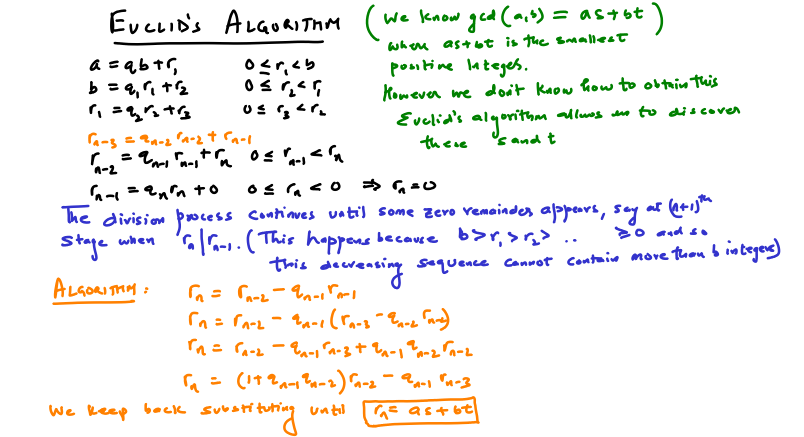 EUCLID'S ALGORITHM
(We know gcd(a,b) = as+bt)
where as+bt is the smallest
positive Integer.
However we don't know how to obtain this
Euclid's algorithm allows us to discover
these s and t
a = qb + r₁ 0 ≤ r₁ < b
b = q₁r₁ + r₂ 0 ≤ r₂ < r₁
r₁ = q₂r₂ + r₃ 0 ≤ r₃ < r₂
rₙ₋₃ = qₙ₋₂ rₙ₋₂ + rₙ₋₁
rₙ₋₂ = qₙ₋₁ rₙ₋₁ + rₙ 0 ≤ rₙ₋₁ < rₙ
rₙ₋₁ = qₙ rₙ + 0 0 ≤ rₙ < 0 ⇒ rₙ = 0
The division process continues until some zero remainder appears, say at (n+1)ᵗʰ
stage when rₙ | rₙ₋₁. (This happens because b > r₁ > r₂ > .. ≥ 0 and so
this decreasing sequence cannot contain more than b integers)
ALGORITHM: rₙ = rₙ₋₂ − qₙ₋₁ rₙ₋₁
rₙ = rₙ₋₂ − qₙ₋₁ (rₙ₋₃ − qₙ₋₂ rₙ₋₂)
rₙ = rₙ₋₂ − qₙ₋₁ rₙ₋₃ + qₙ₋₁ qₙ₋₂ rₙ₋₂
rₙ = (1 + qₙ₋₁ qₙ₋₂) rₙ₋₂ − qₙ₋₁ rₙ₋₃
We keep back substituting until rₙ = as + bt